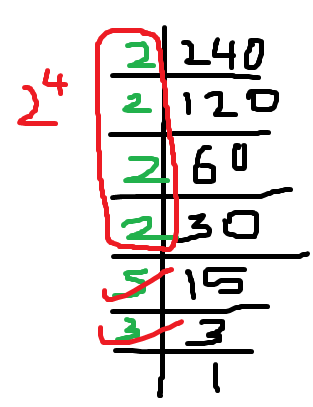 2 240
2 120
2⁴
2 60
2 30
5 15
3 3
1